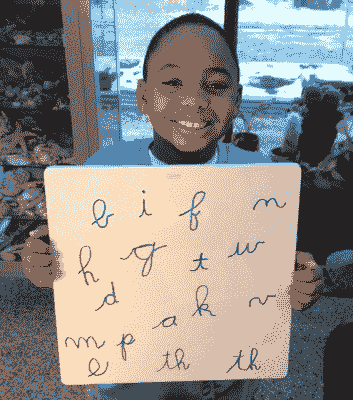 b i f n
h g t w
d k v
m p a
e th th